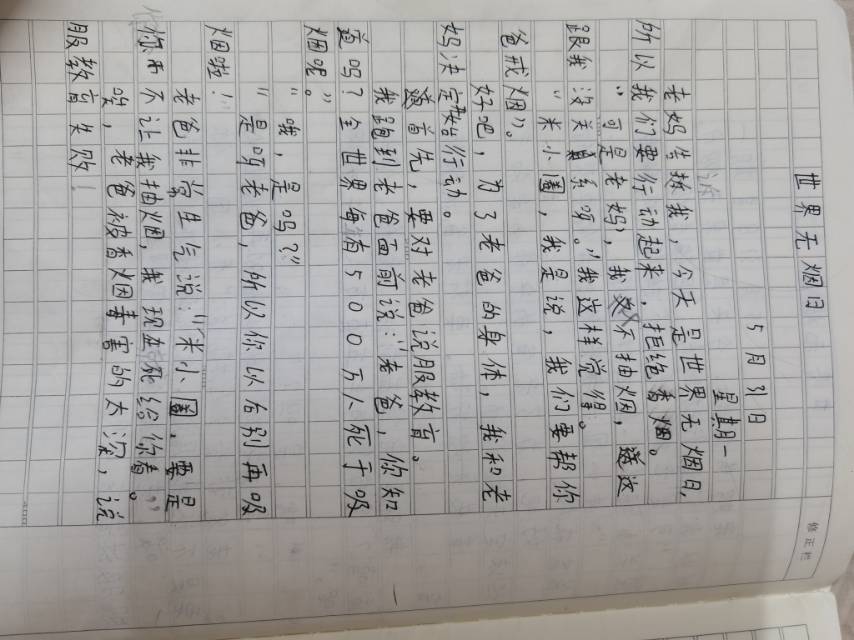 世界无烟日
5月31日
星期一
老妈告拆我，今天是世界无烟日，
所以我们要行动起来，拒绝香烟。
"可是老妈，我又不抽烟，这
跟我没关系呀。"我这样觉得。
"米小圈，我是说，我们要帮你
爸戒烟"。
好吧，为了老爸的身体，我和老
妈决定开始行动。
首先，要对老爸说服教育。
我跑到老爸面前说："老爸，你知
道吗？全世界每有500万人死于吸
烟呢。"
"哦，是吗？"
"是呀老爸，所以你以后别再吸
烟啦！"
老爸非常生气说："米小圈，要是
你不让我抽烟，我现在死给你看。"
哎，老爸被香烟毒害的太深，说
服教育失败！
修正栏